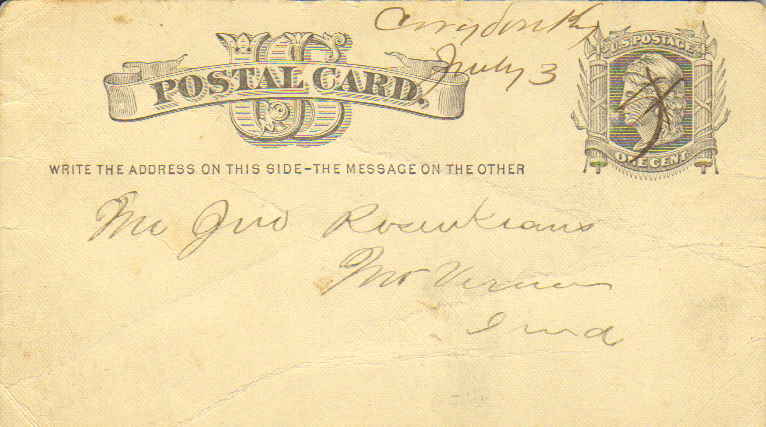 Corydon Ky
July 3
U.S. POSTAGE
POSTAL CARD.
ONE CENT
WRITE THE ADDRESS ON THIS SIDE-THE MESSAGE ON THE OTHER
Mr Jno Rosenkrans
Mt Vernon
Ind